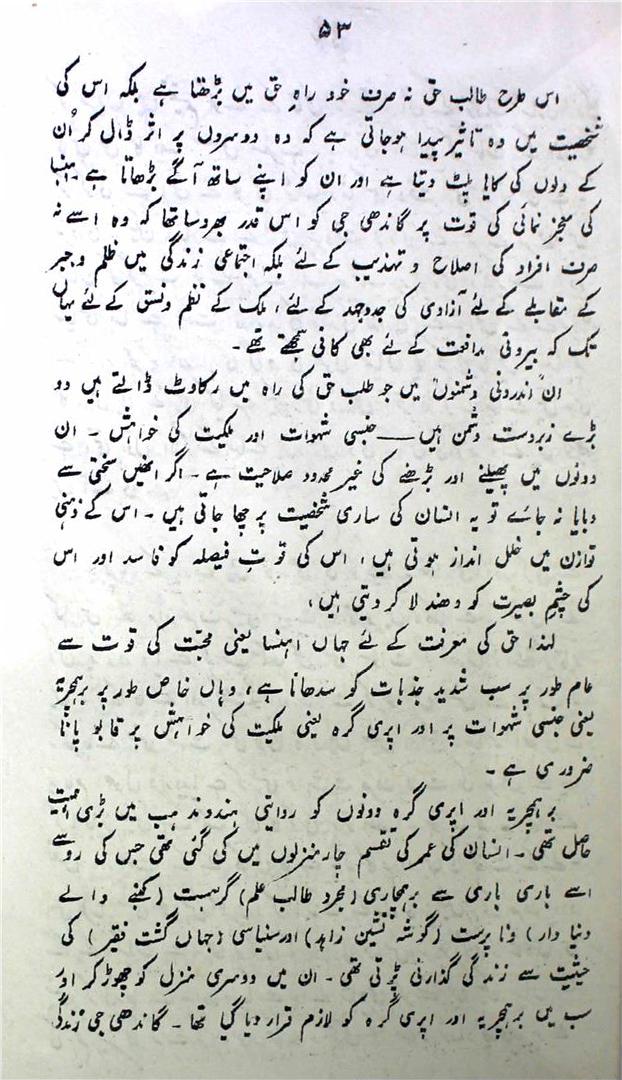 ۵۳
اس طرح طالب حق نہ صرف خود راہِ حق میں بڑھتا ہے بلکہ اس کی
شخصیت میں وہ تاثیر پیدا ہوجاتی ہے کہ وہ دوسروں پر اثر ڈال کر اُن
کے دلوں کی کایا پلٹ دیتا ہے اور ان کو اپنے ساتھ آگے بڑھاتا ہے۔ اہنسا
کی معجز نمائی کی قوت پر گاندھی جی کو اس قدر بھروسا تھا کہ وہ اسے نہ
صرف افراد کی اصلاح و تہذیب کے لئے بلکہ اجتماعی زندگی میں ظلم و جبر
کے مقابلے کے لئے آزادی کی جدوجہد کے لئے، ملک کے نظم و نسق کے لئے یہاں
تک کہ بیرونی مدافعت کے لئے بھی کافی سمجھتے تھے۔
ان "اندرونی دشمنوں" میں جو طلب حق کی راہ میں رکاوٹ ڈالتے ہیں دو
بڑے زبردست دشمن ہیں —— جنسی شہوات اور ملکیت کی خواہش۔ ان
دونوں میں پھیلنے اور بڑھنے کی غیر محدود صلاحیت ہے۔ اگر انھیں سختی سے
دبایا نہ جائے تو یہ انسان کی ساری شخصیت پر چھا جاتی ہیں۔ اس کے ذہنی
توازن میں خلل انداز ہوتی ہیں، اس کی قوتِ فیصلہ کو فاسد اور اس
کی چشمِ بصیرت کو دھندلا کر دیتی ہیں،
لہذا حق کی معرفت کے لئے جہاں اہنسا یعنی محبت کی قوت سے
عام طور پر سب شدید جذبات کو سدھانا ہے، وہاں خاص طور پر برہمچریہ
یعنی جنسی شہوات پر اور اپری گرہ یعنی ملکیت کی خواہش پر قابو پانا
ضروری ہے۔
برہمچریہ اور اپری گرہ دونوں کو روایتی ہندو مذہب میں بڑی اہمیت
حاصل تھی۔ انسان کی عمر کی تقسیم چار منزلوں میں کی گئی تھی جس کی رو سے
اسے باری باری سے برہمچاری (مجرد طالب علم) گرہست (کنبے والے
دنیا دار) ونا پرست (گوشہ نشین زاہد) اور سنیاسی (جہاں گشت فقیر) کی
حیثیت سے زندگی گذارنی پڑتی تھی۔ ان میں دوسری منزل کو چھوڑ کر اور
سب میں برہمچریہ اور اپری گرہ کو لازم قرار دیا گیا تھا۔ گاندھی جی زندگی